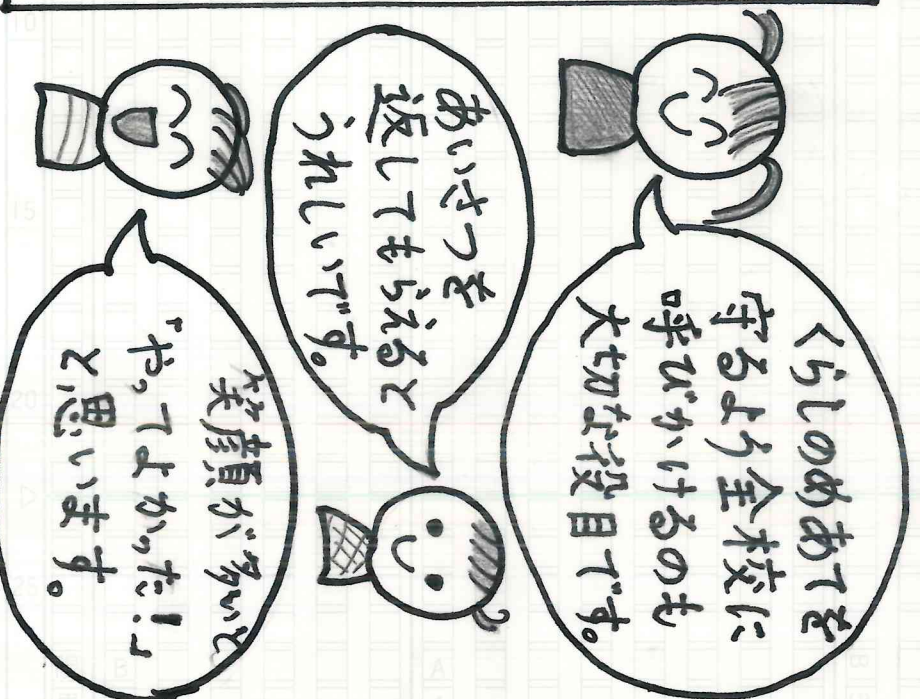 くらしのめあてを
守るよう全校に
呼びかけるのも
大切な役目です。
あいさつを
返してもらえると
うれしいです。
笑顔が多いと
「やってよかった!」
と思います。